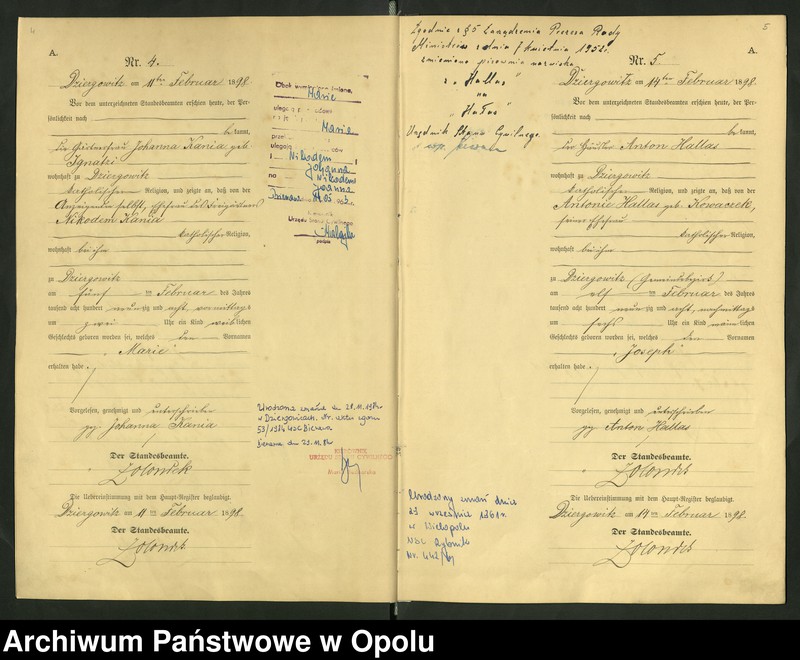 4
A.
Nr. 4.
Dziergowitz am 11ten Februar 1898.
Vor dem unterzeichneten Standesbeamten erschien heute, der Per-
sönlichkeit nach
bekannt,
die Gärtnerfrau Johanna Kania geb.
Ignatzi
wohnhaft zu Dziergowitz
katholischer Religion, und zeigte an, daß von der
Nikodem Kania
katholischer Religion,
wohnhaft bei ihm
zu Dziergowitz
am fünf ten Februar des Jahres
tausend acht hundert neunzig und acht, vormittags
um zwei Uhr ein Kind weiblichen
Geschlechts geboren worden sei, welches den Vornamen
„Marie“
erhalten habe.
Vorgelesen, genehmigt und unterschrieben
gez. Johanna Kania
Der Standesbeamte.
Zolondek
Die Uebereinstimmung mit dem Haupt-Register beglaubigt.
Dziergowitz am 11ten Februar 1898.
Der Standesbeamte.
Zolondek
Marie
Maria
Nikodem
Johanna
no Nikodem
Joanna
Urzędu Stanu Cywilnego
Urodzona zmarła dn. 28.11.1984
w Dziergowicach. Nr. aktu zgonu
53/1984 USC Bierawa
Bierawa dn 29.11.84
KIEROWNIK
URZĘDU STANU CYWILNEGO
Zgodnie z § 5 Zarządzenia Prezesa Rady
Ministrów z dnia 7 kwietnia 1952r.
zmieniono pisownię nazwiska
z „Hallas“
na
„Hałas“
Urzędnik Stanu Cywilnego.
5
A.
Nr. 5.
Dziergowitz am 14ten Februar 1898.
Vor dem unterzeichneten Standesbeamten erschien heute, der Per-
sönlichkeit nach
bekannt,
der Häusler Anton Hallas
wohnhaft zu Dziergowitz
katholischer Religion, und zeigte an, daß von der
Antonie Hallas geb. Kowaczek,
seiner Ehefrau
katholischer Religion,
wohnhaft bei ihm
zu Dziergowitz (Gemeindebezirk)
am elf ten Februar des Jahres
tausend acht hundert neunzig und acht, nachmittags
um sechs Uhr ein Kind männlichen
Geschlechts geboren worden sei, welches den Vornamen
„Joseph“
erhalten habe.
Vorgelesen, genehmigt und unterschrieben
gez. Anton Hallas
Der Standesbeamte.
Zolondek
Die Uebereinstimmung mit dem Haupt-Register beglaubigt.
Dziergowitz am 14ten Februar 1898.
Der Standesbeamte.
Zolondek
Urodzony zmarł dnia
23 września 1961r.
w Wielopolu
USC Rybnik
Nr. 442/61
Archiwum Państwowe w Opolu